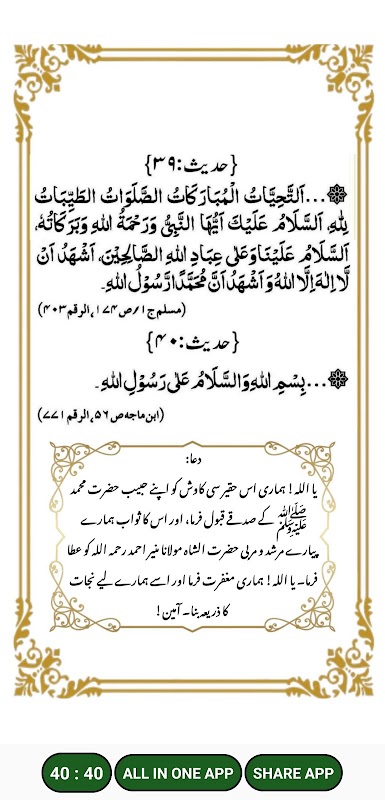 {حدیث:۳۹}
...اَلتَّحِيَّاتُ الْمُبَارَكَاتُ الصَّلَوَاتُ الطَّيِّبَاتُ
لِلّٰهِ، اَلسَّلَامُ عَلَيْكَ اَيُّهَا النَّبِيُّ وَرَحْمَةُ اللهِ وَبَرَكَاتُهٗ،
اَلسَّلَامُ عَلَيْنَا وَعَلٰى عِبَادِ اللهِ الصَّالِحِيْنَ، اَشْهَدُ اَنْ
لَّا اِلٰهَ اِلَّا اللهُ وَ اَشْهَدُ اَنَّ مُحَمَّدًا رَّسُوْلُ اللهِ۔
(مسلم ج۱/ص۱۷۴، الرقم ۴۰۳)
{حدیث:۴۰}
...بِسْمِ اللهِ وَالسَّلَامُ عَلٰى رَسُوْلِ اللهِ۔
(ابن ماجہ ص۵۶، الرقم ۷۷۱)
دعا:
یا اللہ! ہماری اس حقیر سی کاوش کو اپنے حبیب حضرت محمد
ﷺ کے صدقے قبول فرما، اور اس کا ثواب ہمارے
پیارے مرشد و مربی حضرت الشاہ مولانا منیر احمد رحمہ اللہ کو عطا
فرما۔ یا اللہ! ہماری مغفرت فرما اور اسے ہمارے لیے نجات
کا ذریعہ بنا۔ آمین!
40 : 40 ALL IN ONE APP SHARE APP